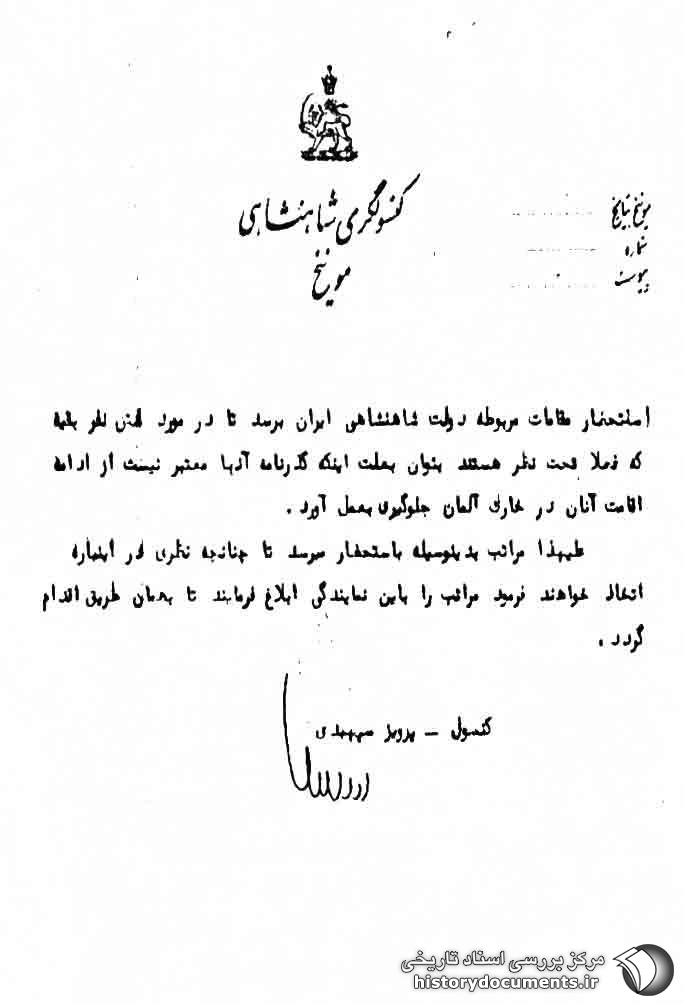 کنسولگری شاهنشاهی
مونیخ
مونیخ بتاریخ
شماره
پیوست
استحضار مقامات مربوطه دولت شاهنشاهی ایران برسد تا در مورد نفر بقیه
که فعلا تحت نظر هستند بتوان بعلت اینکه گذرنامه آنها معتبر نیست از ادامه
اقامت آنان در خاک آلمان جلوگیری بعمل آورد .
علیهذا مراتب بدینوسیله باستحضار میرسد تا چنانچه نظری در اینباره
اتخاذ خواهند فرمود مراتب را باین نمایندگی ابلاغ فرمایند تا بهمان طریق اقدام
گردد .
کنسول - پرویز سپهبدی
مرکز بررسی اسناد تاریخی
historydocuments.ir